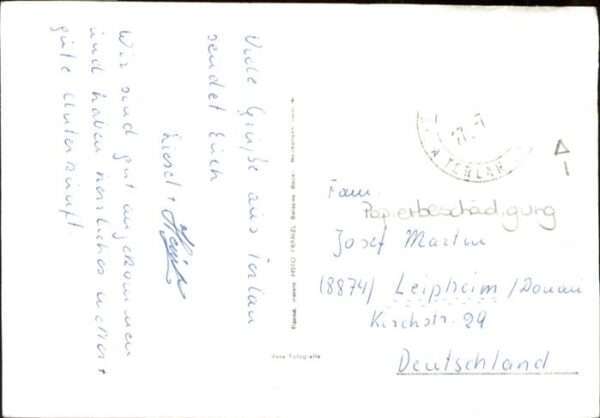 Viele Grüße aus Terlan
sendet Euch
Liesel +
Wir sind gut angekommen
und haben herrliches Wetter +
gute Unterkunft.
TERLAN
Fam.
Papierbeschädigung
Josef Martin
(8874) Leipheim /Donau
Kirchstr. 29
Deutschland
Vera Fotografia